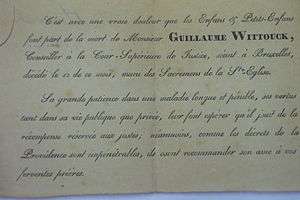 C'est avec une vraie douleur que les Enfans & Petits-Enfans
font part de la mort de Monsieur GUILLAUME WITTOUCK,
Conseiller à la Cour Supérieure de Justice, séant à Bruxelles,
décédé le 12 de ce mois, muni des Sacremens de la Ste-Eglise.
Sa grande patience dans une maladie longue et pénible, ses vertus
tant dans sa vie publique que privée, leur font espérer qu'il jouit de la
récompense réservée aux justes; néanmoins, comme les décrets de la
Providence sont impénétrables, ils osent recommander son âme à vos
ferventes prières.